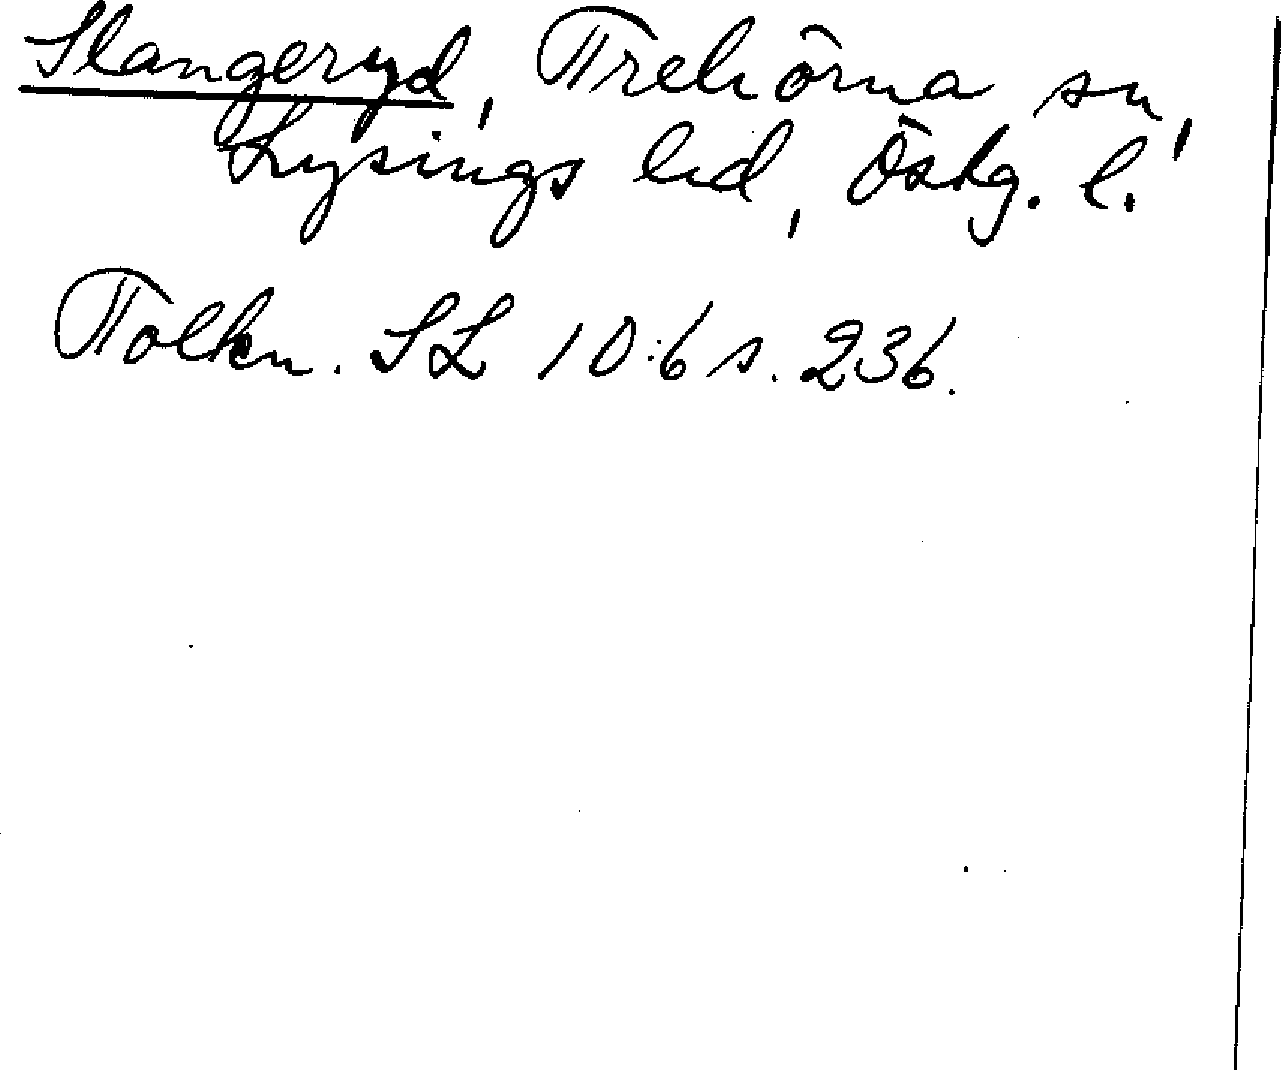 Slangeryd, Trehörna sn,
Lysings hd, Östg. l.
Tolkn. SL 10:6 s. 236.